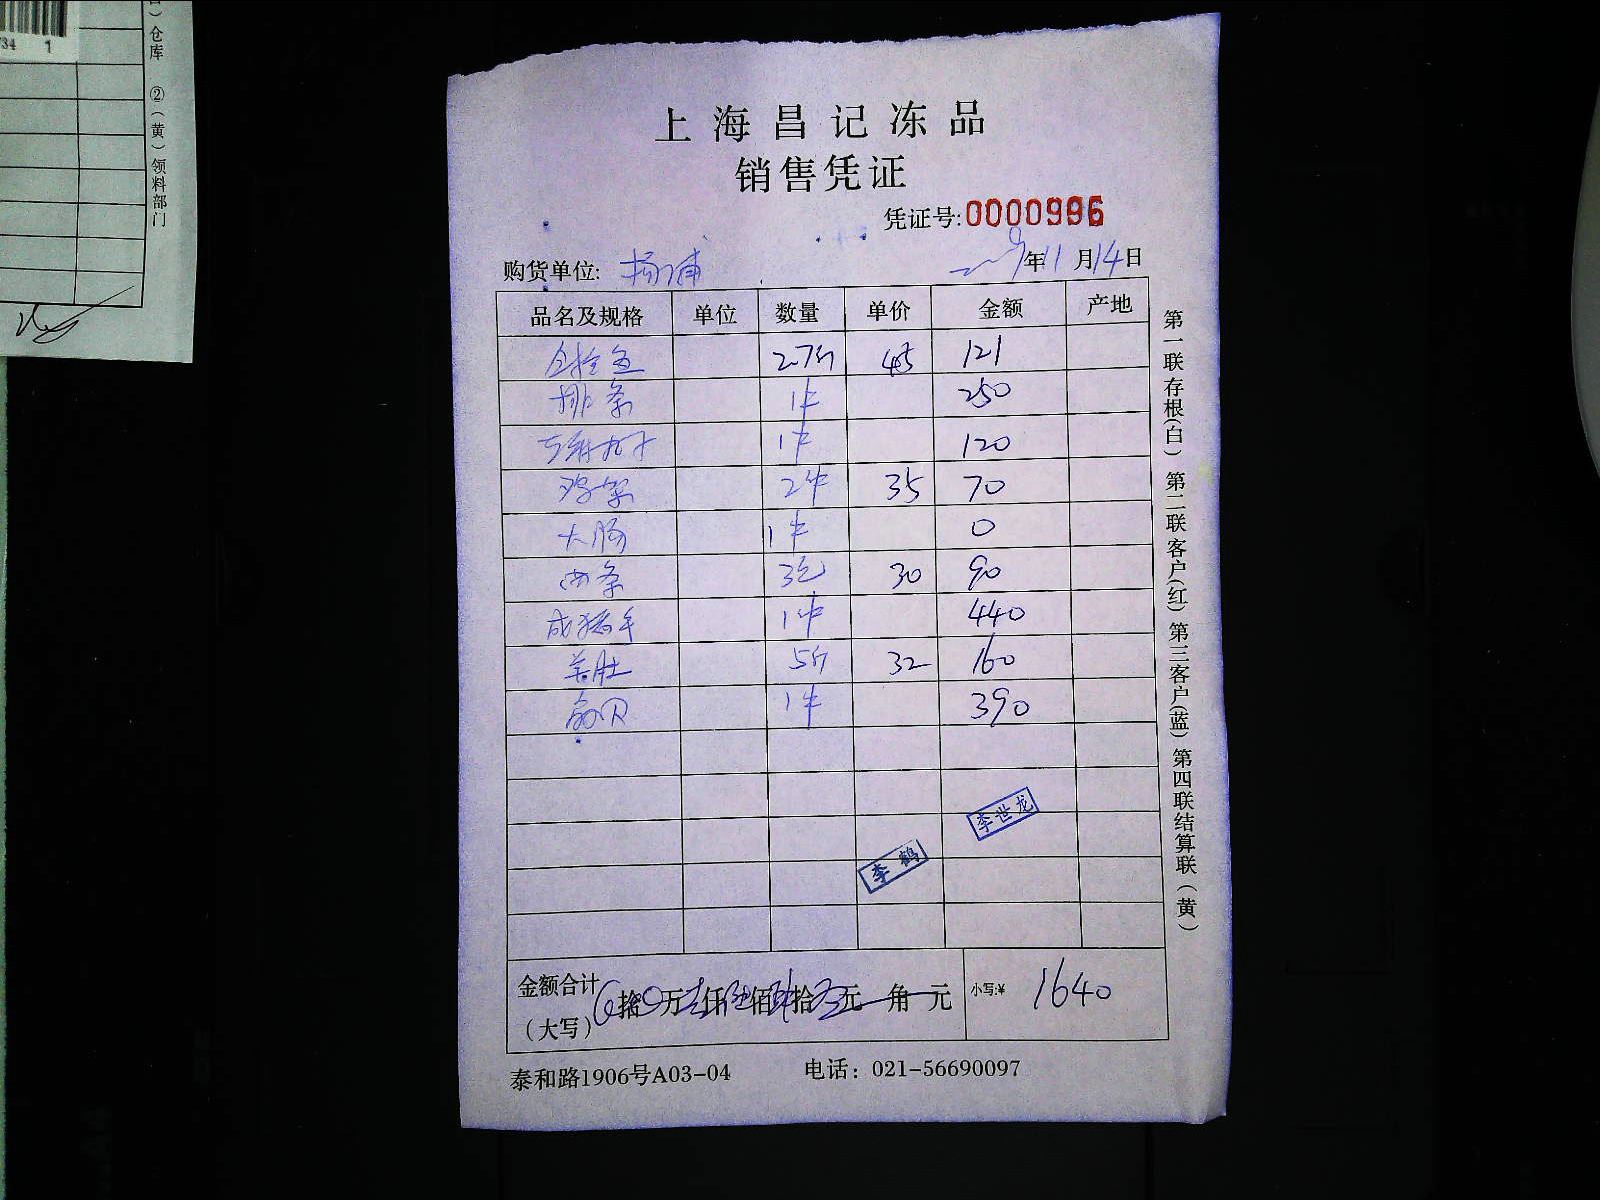 仓库 ②（黄）领料部门
734 1
上海昌记冻品
销售凭证
凭证号:0000996
购货单位: 杨浦 年11月14日
品名及规格 单位 数量 单价 金额 产地
2.7斤 45 121
排条 1件 250
1件 120
鸡架 2件 35 70
大肠 1件 0
肉条 3包 30 90
1件 440
羊肚 5斤 32 160
扇贝 1件 390
李世龙
李鹤
金额合计
（大写） 拾 万 仟 佰 拾 元 角 元 小写:¥ 1640
泰和路1906号A03-04 电话：021-56690097
第一联存根(白) 第二联客户(红) 第三客户(蓝) 第四联结算联（黄）